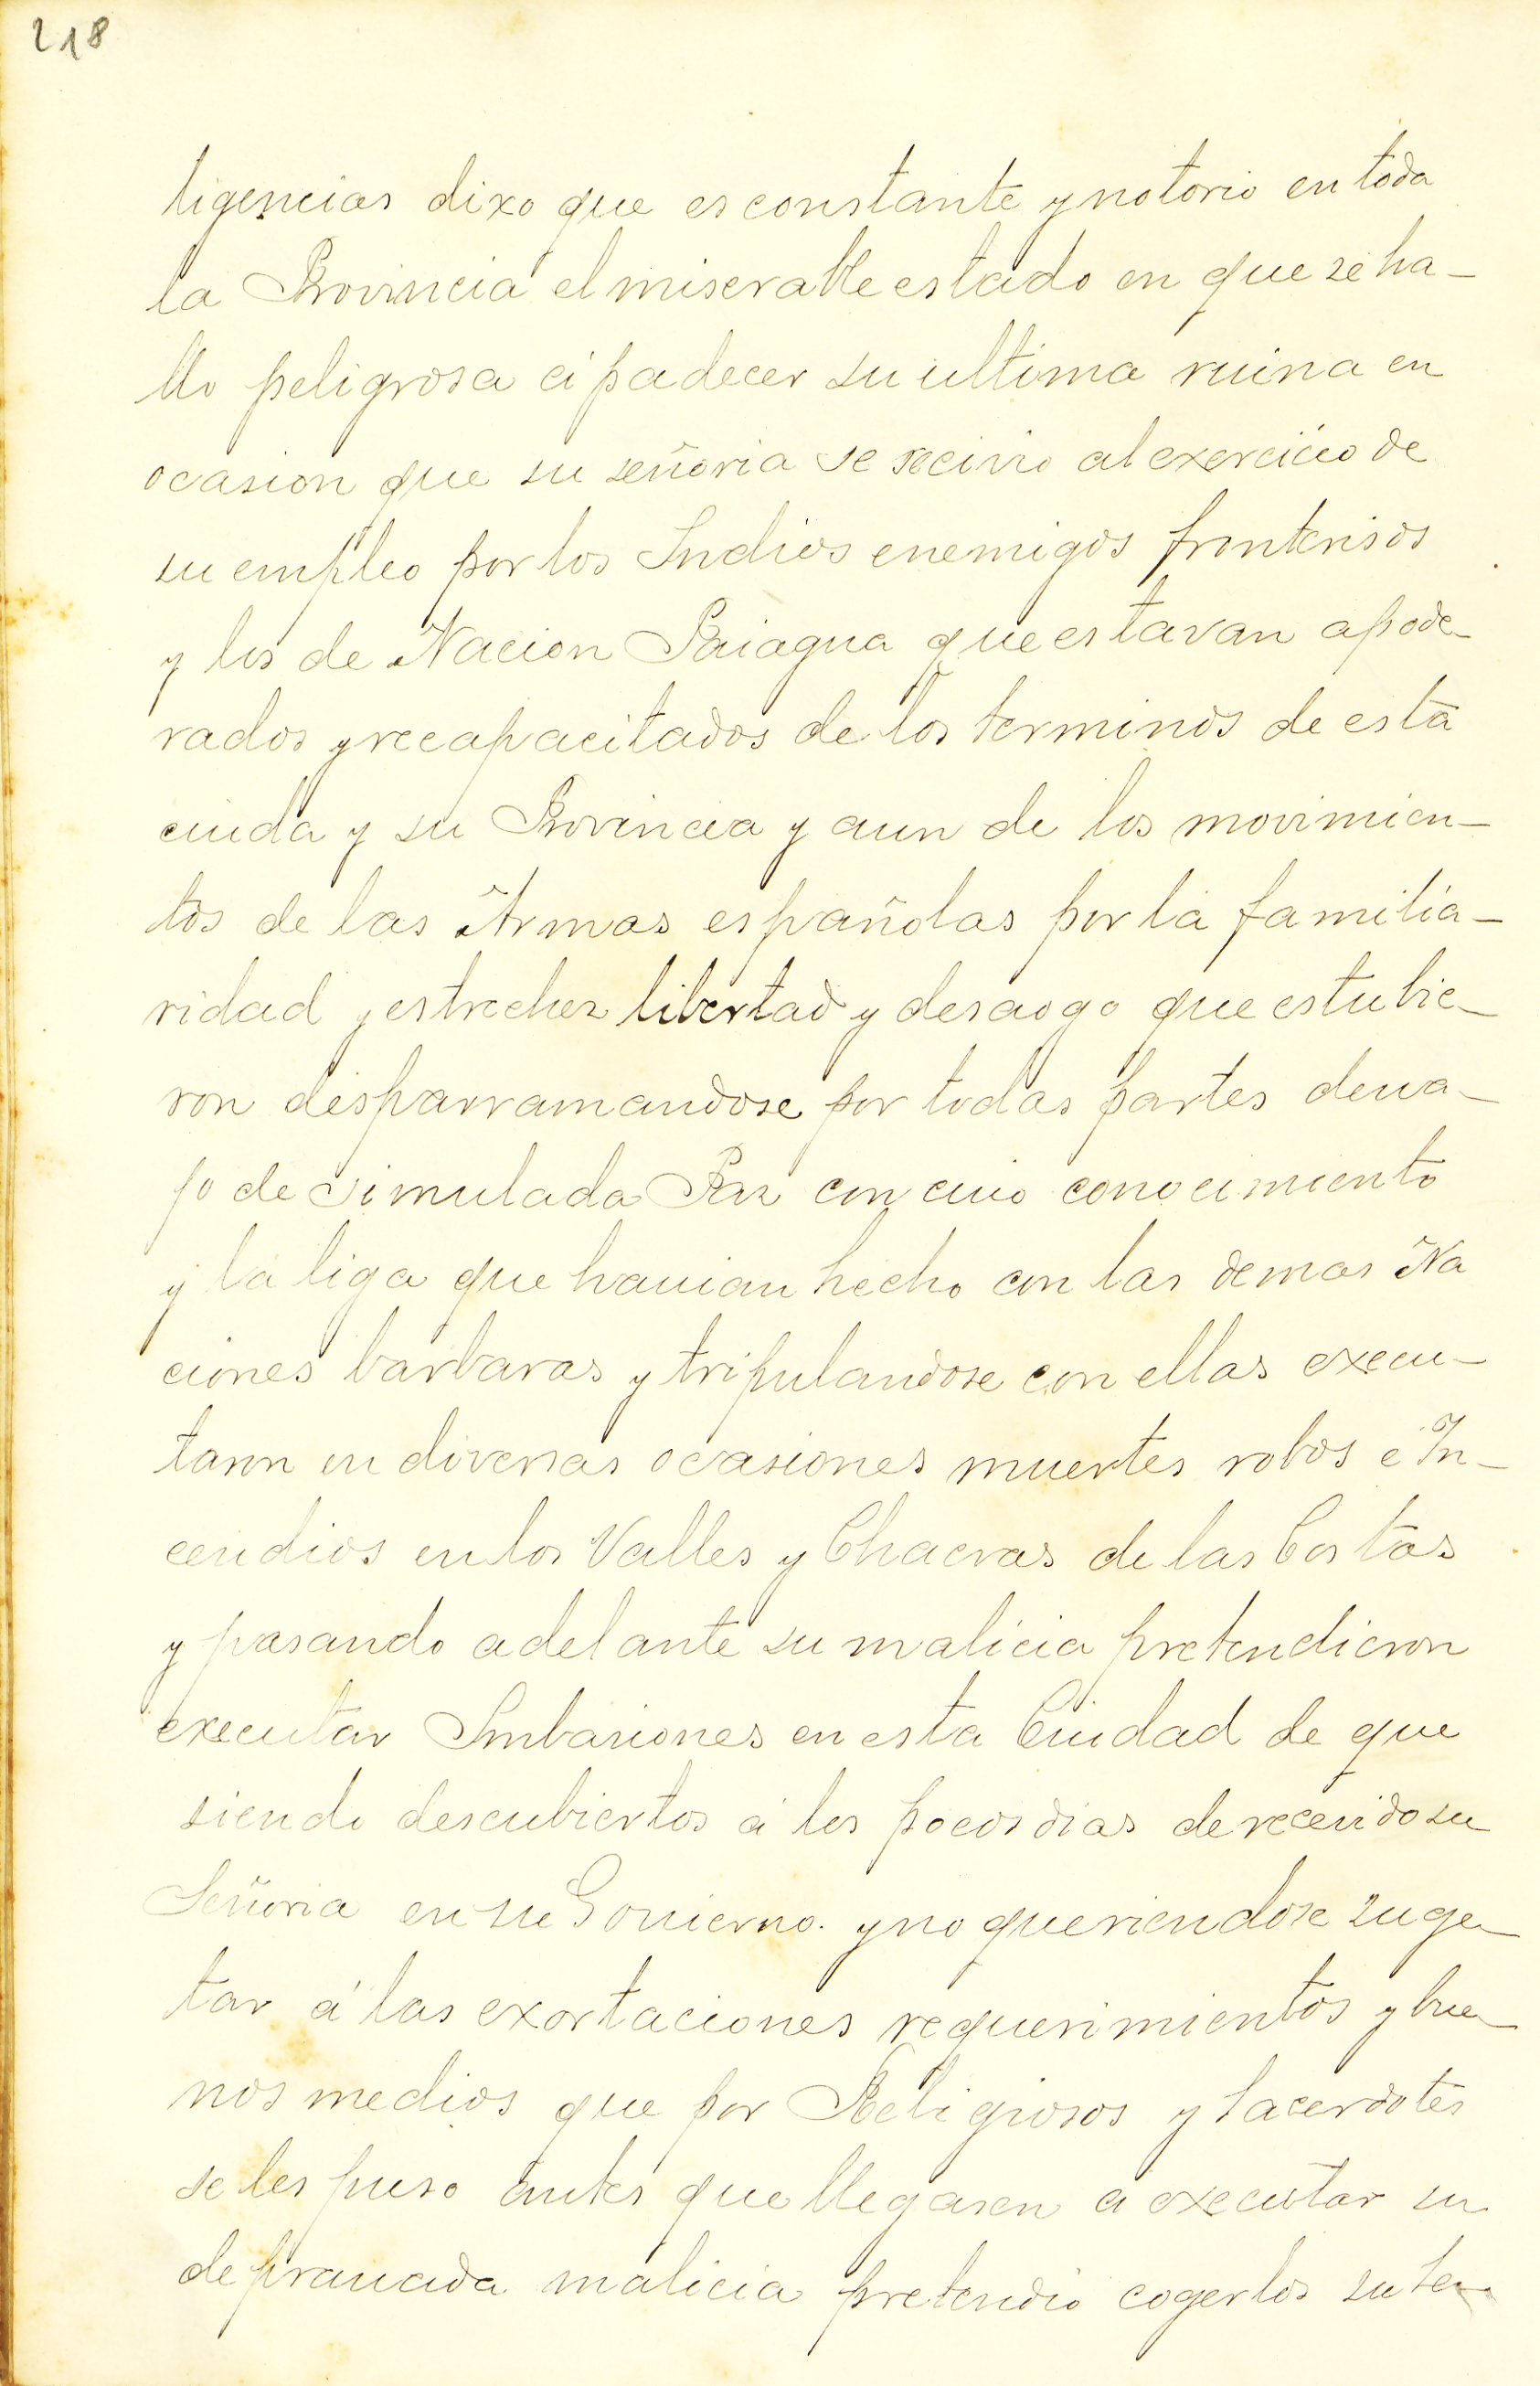 218
ligencias dixo que es constante y notorio en toda
la Provincia el miserable estado en que se ha-
llo peligrosa á padecer su ultima ruina en
ocasion que su señoria se recivio al exercicio de
su empleo por los Indios enemigos fronterisos
y los de Nacion Paiagua que estavan apode-
rados y recapacitados de los terminos de esta
ciuda y su Provincia y aun de los movimien-
tos de las Armas españolas por la familia-
ridad y estrechez libertad y desaogo que estubie-
ron desparramandose por todas partes deva-
jo de simulada Paz con cuio conocimiento
y la liga que havian hecho con las demas Na
ciones barbaras y tripulandose con ellas execu-
taron en diversas ocasiones muertes robos é In-
cendios en los Valles y Chacras de las Costas
y pasando adelante su malicia pretendieron
executar Imbasiones en esta Ciudad de que
siendo descubiertos á los pocos dias de recevido su
Señoria en su Govierno. y no queriendose suge-
tar á las exortaciones requerimientos y bue-
nos medios que por Religiosos y Sacerdotes
se les puso antes que llegasen a executar su
depravada malicia pretendio cogerlos su Se-